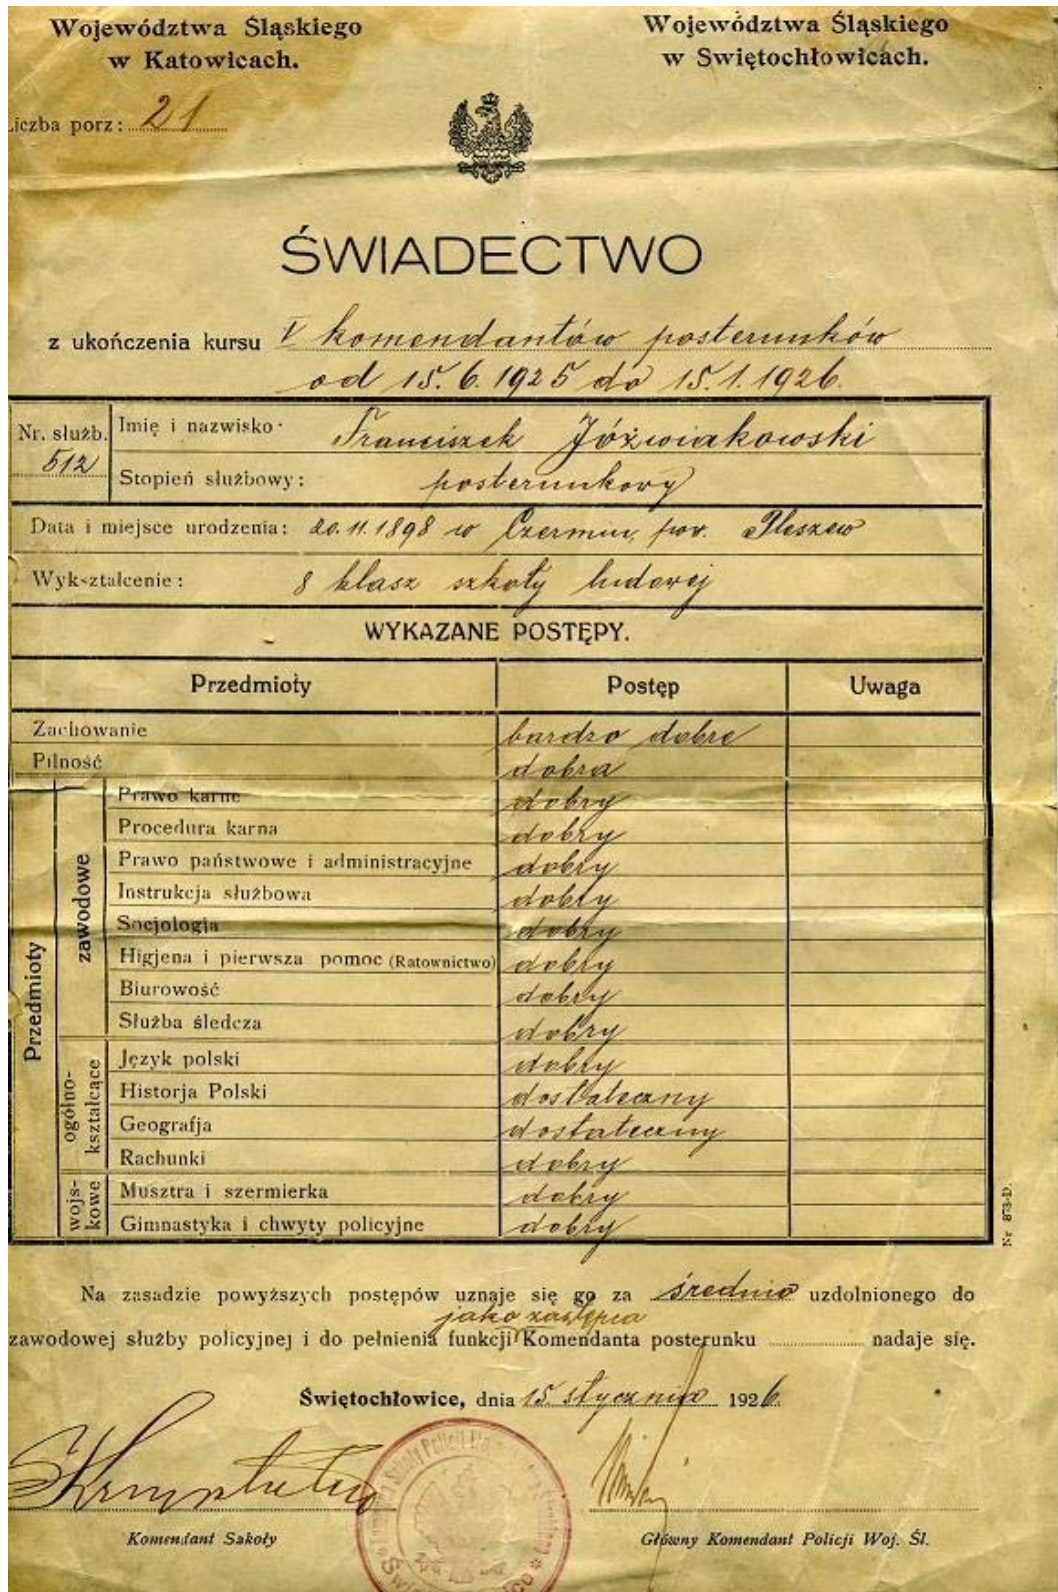 Województwa Śląskiego
w Katowicach.
Województwa Śląskiego
w Swiętochłowicach.
Liczba porz: 21
ŚWIADECTWO
z ukończenia kursu V komendantów posterunków
od 15.6.1925 do 15.1.1926.
Nr. służb. 512
Imię i nazwisko· Franciszek Jóźwiakowski
Stopień służbowy: posterunkowy
Data i miejsce urodzenia: 20.11.1898 w Czermin, pow. Pleszew
Wykształcenie: 8 klasz szkoły ludowej
WYKAZANE POSTĘPY.
Przedmioty Postęp Uwaga
Zachowanie bardzo dobre
Pilność dobra
Przedmioty
zawodowe
Prawo karne dobry
Procedura karna dobry
Prawo państwowe i administracyjne dobry
Instrukcja służbowa dobry
Socjologja dobry
Higjena i pierwsza pomoc (Ratownictwo) dobry
Biurowość dobry
Służba śledcza dobry
ogólno-
kształcące
Język polski dobry
Historja Polski dostateczny
Geografja dostateczny
Rachunki dobry
wojs-
kowe
Musztra i szermierka dobry
Gimnastyka i chwyty policyjne dobry
Nr 873-D.
Na zasadzie powyższych postępów uznaje się go za średnio uzdolnionego do
jako zastępca
zawodowej służby policyjnej i do pełnienia funkcji Komendanta posterunku nadaje się.
Świętochłowice, dnia 15. stycznia 1926.
Komendant Szkoły
Główny Komendant Policji Woj. Śl.